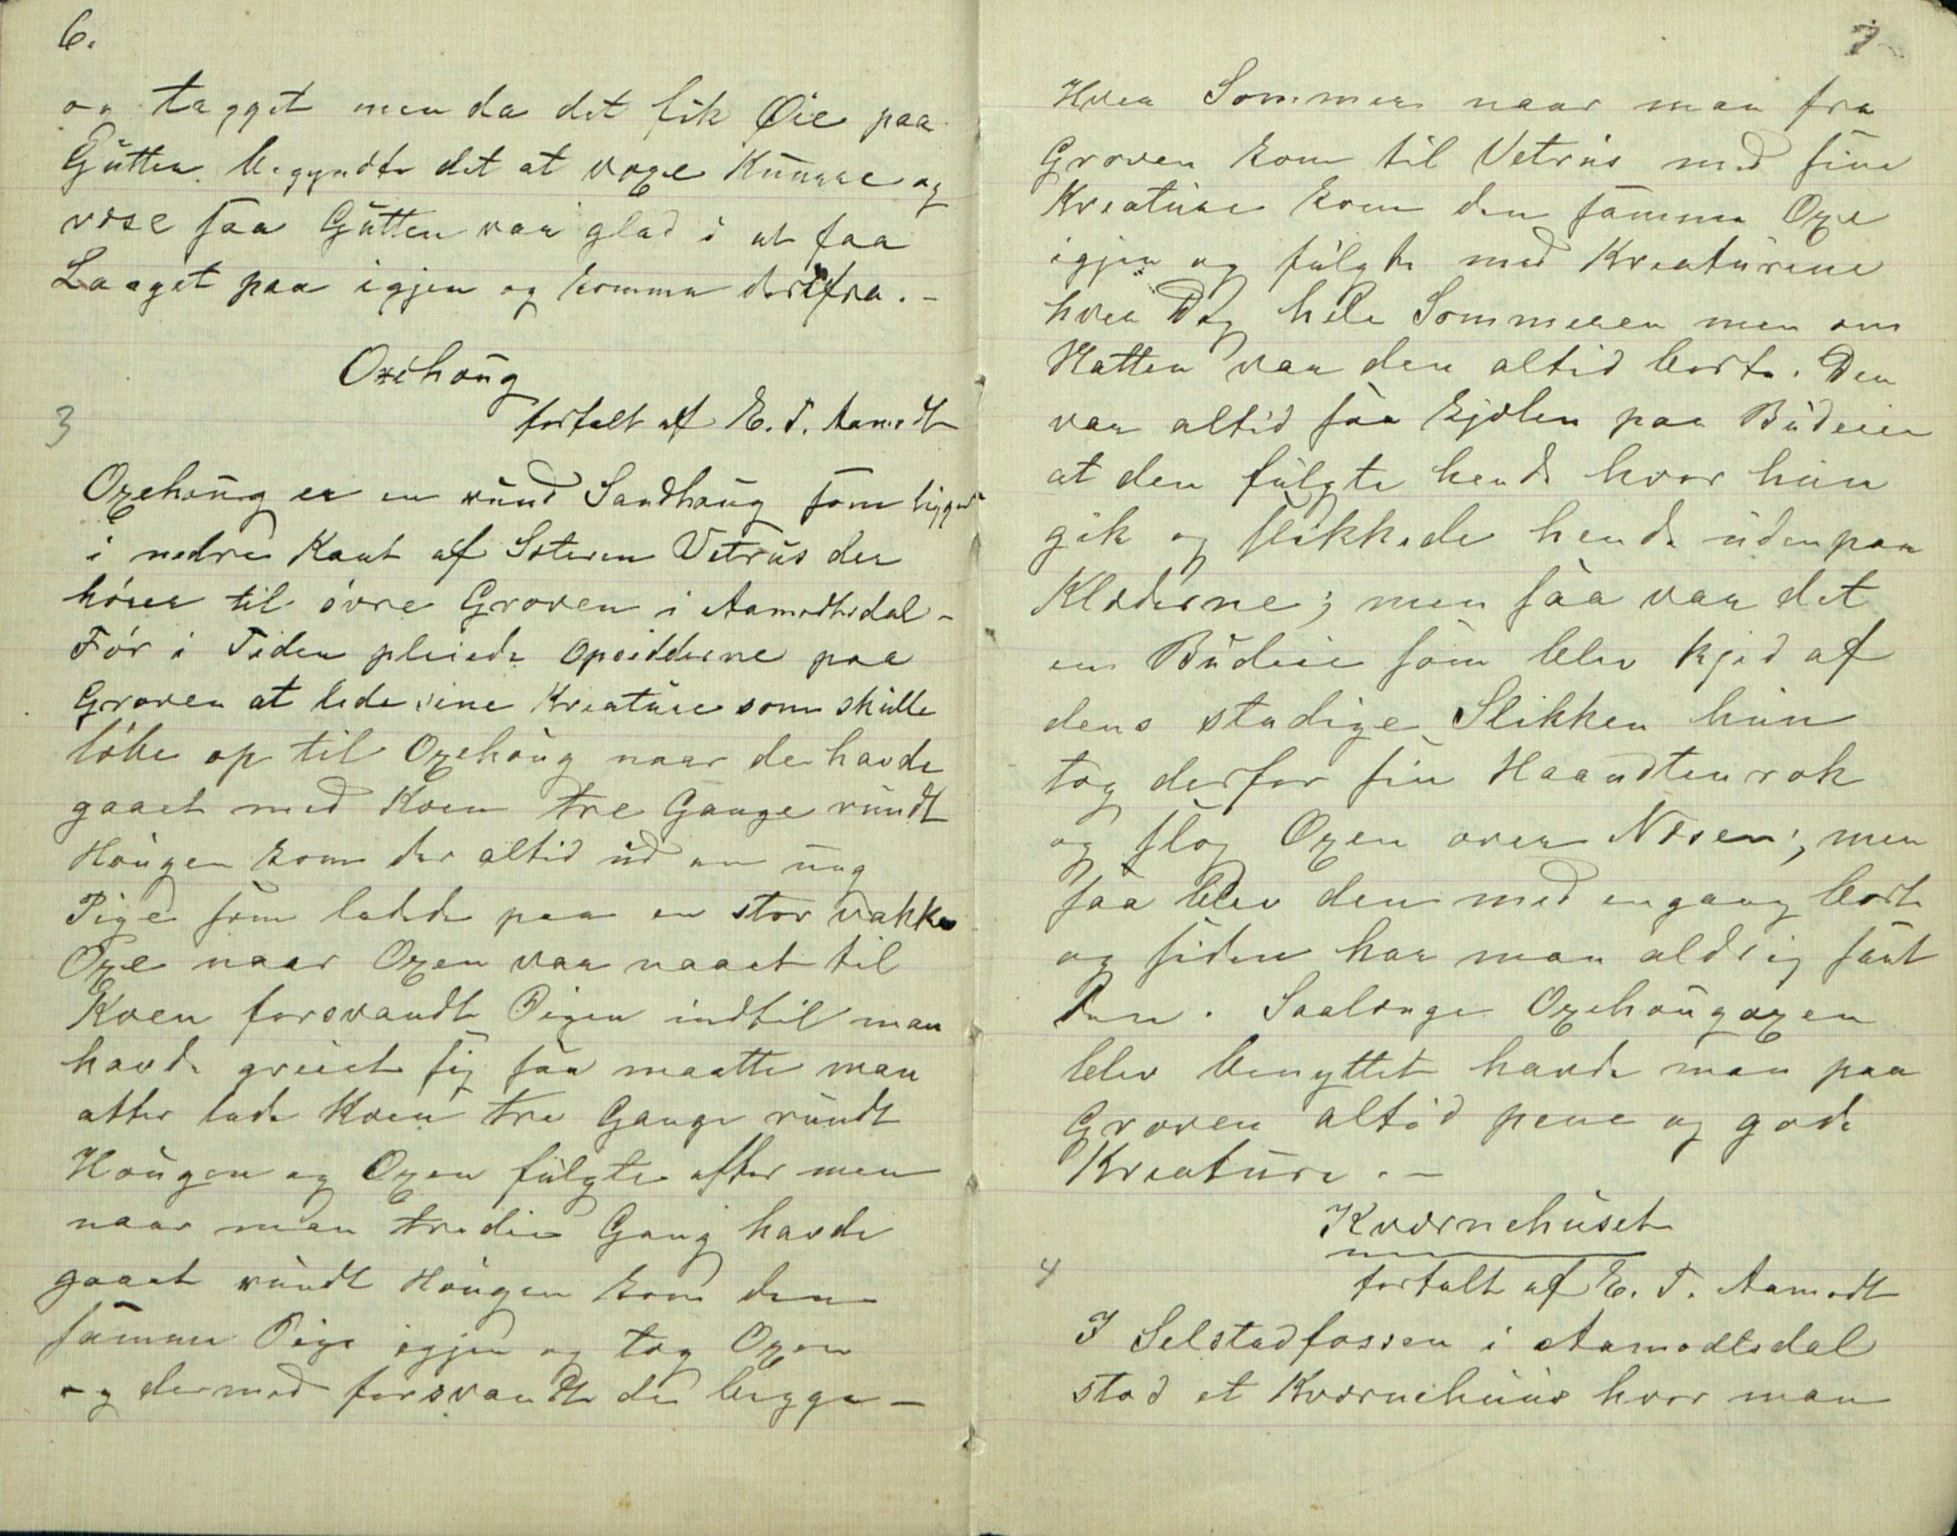 6.
og tagget men da det fik Øie paa
Gutten begyndte det at voxe Kuurre og
vise saa Gutten var glad i at faa
Laaget paa igjen og komme derifra. –
Oxehoug
3
fortalt af E. T. Aamodt
Oxehoug er en rund Sandhaug som ligger
i nedre Kant af Sæteren Vetrus der
hører til øvre Groven i Aamodtsdal –
Før i Tiden pleiede Opsidderne paa
Groven at lede sine Kreature som skulle
løbe op til Oxehoug naar de havde
gaaet med Koen tre Gange rundt
Hougen kom der altid ud en ung
Pige som ledede paa en stor vakker
Oxe naar Oxen var naaet til
Koen forsvandt Pigen indtil man
havde greiet sig saa maatte man
atter lede Koen tre Gange rundt
Hougen og Oxen fulgte efter men
naar man tredie Gang havde
gaaet rundt Hougen kom den
samme Pige igjen og tog Oxen
og dermed forsvandt de begge –
7
Hver Sommer naar man fra
Groven kom til Vetrus med sine
Kreature kom den samme Oxe
igjen og fulgte med Kreaturene
hver Dag hele Sommeren men om
Natten var den altid borte. Den
var altid saa kjælen paa Budeien
at den fulgte hende hvor hun
gik og slikkede hende udenpaa
Klæderne; men saa var det
en Budeie som blev kjed af
dens stadige Slikken hun
tog derfor sin Haandtenrok
og slog Oxen over Næsen; men
saa blev den med engang borte
og siden har man aldrig seet
den. Saalænge Oxehougoxen
blev benyttet havde man paa
Groven altid pene og gode
Kreature. –
Kværnehuset
4
fortalt af E. T. Aamodt
I Selstadfossen i Aamodtsdal
stod et Kværnehuus hvor man